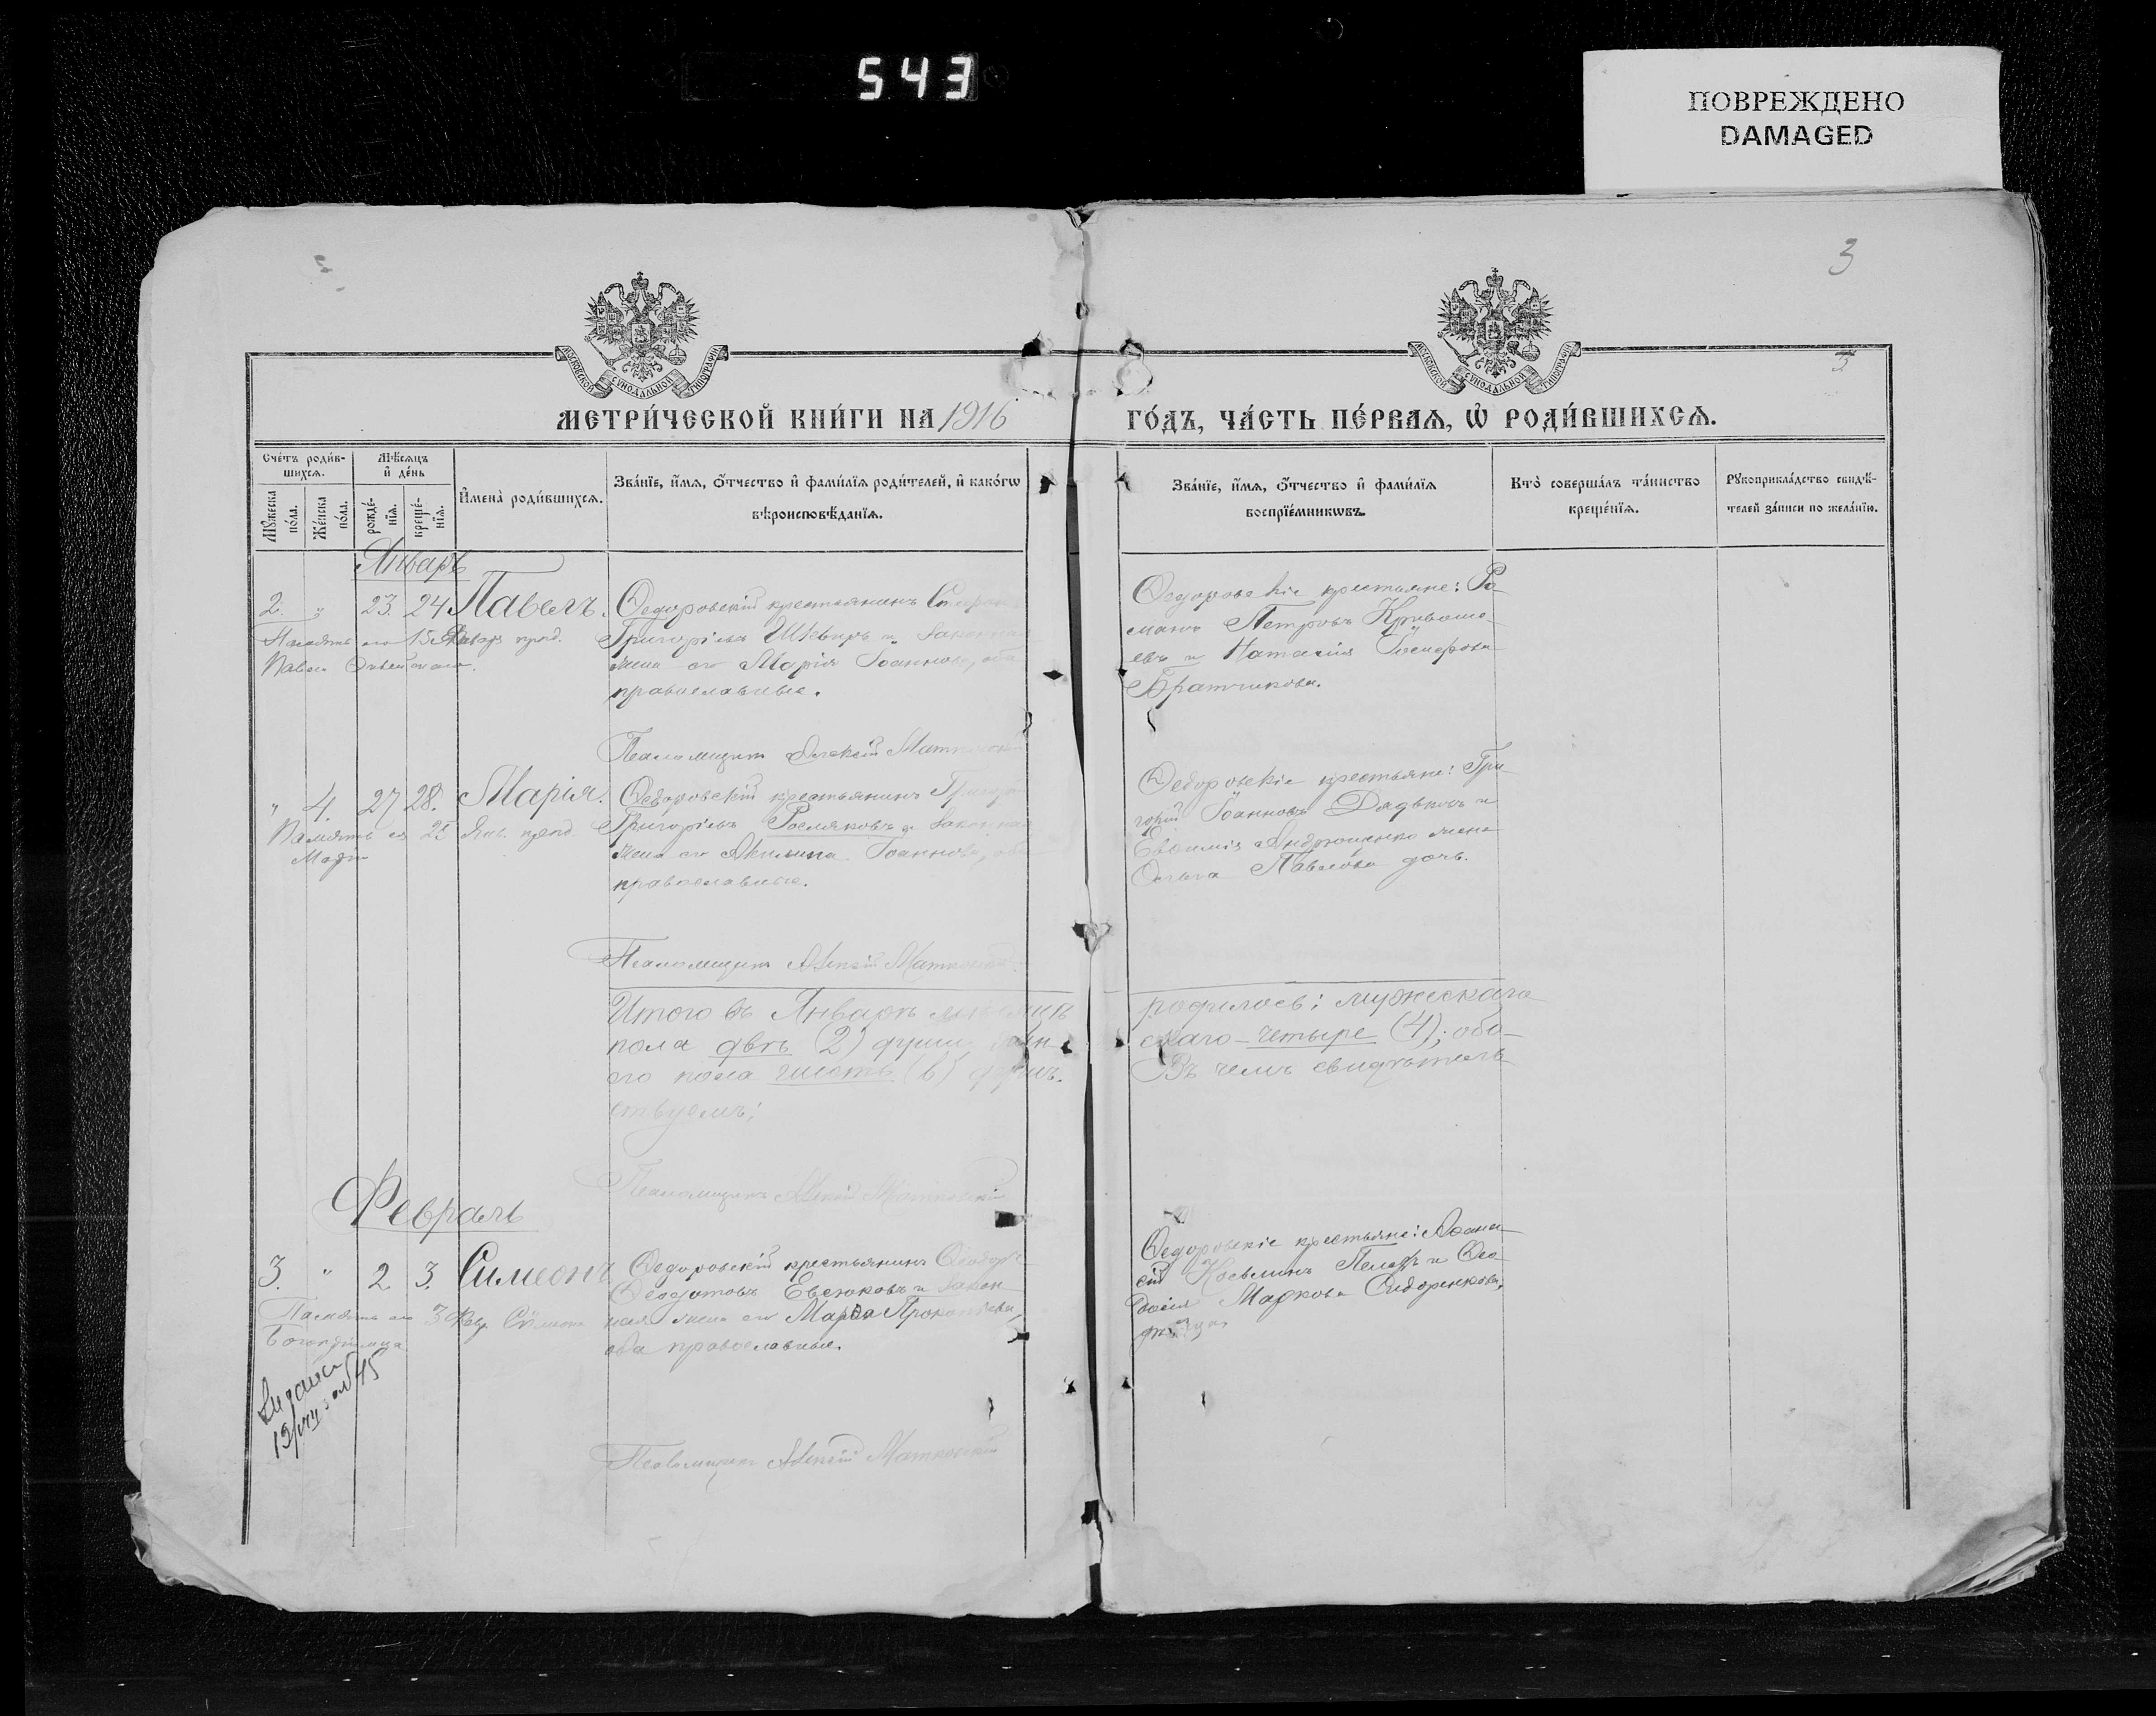 543
ПОВРЕЖДЕНО
DAMAGED
3
МОСКОВСКОЙ СѴНОДАЛЬНОЙ ТИПОГРАФІИ
МОСКОВСКОЙ СѴНОДАЛЬНОЙ ТИПОГРАФІИ
МЕТРИ́ЧЕСКОЙ КНИ́ГИ НА 1916
ГО́ДЪ, ЧА́СТЬ ПЕ́РВАЯ, Ѡ҆ РОДИ́ВШИХСЯ.
Сче́тъ роди́в-
шихся.
Мѣ́сяцъ
и҆ де́нь
Мꙋ́жеска
по́ла.
Же́нска
по́ла.
рожде́-
нїя.
креще́-
нїя.
И҆мена̀ роди́вшихся.
Зва́нїе, и҆́мя, ѻ҆́тчество и҆ фами́лїя роди́телей, и҆ како́гѡ
вѣроисповѣ́данїя.
Зва́нїе, и҆́мя, ѻ҆́тчество и҆ фами́лїя
воспрїе́мникѡвъ.
Кто̀ соверша́лъ та́инство
креще́нїя.
Рꙋкоприкла́дство свидѣ́-
телей за́писи по жела́нїю.
Январь
2. " 23. 24 Павелъ.
Память его 15 Января преп.
Павла
Ѳедоровскій крестьянинъ
Григорьевъ и законная
жена его Марія Іоаннова, оба
православные.
Псаломщикъ Алексій Матковскій
Ѳедоровскіе крестьяне: Ро-
манъ Петровъ Кривоше-
евъ и Наталія Іосифова
Братчикова.
" 4. 27 28. Марія.
Память ея 26 Янв. преп.
Маріи
Ѳедоровскій крестьянинъ Григорій
Григорьевъ Росляковъ и законная
жена его Акилина Іоаннова, оба
православные.
Псаломщикъ Алексій Матковскій
Ѳедоровскіе крестьяне: Гри-
горій Іоанновъ Дядьковъ и
Евѳимія Андрющенко жена
Ольга Павлова дочь.
Итого въ Январѣ мѣсяцѣ
родилось: мужескаго
пола двѣ (2) души, жен-
скаго – четыре (4); обо-
его пола шесть (6) душъ.
Въ чемъ свидѣтель-
ствуемъ:
Псаломщикъ Алексій Матковскій
Февраль
3. " 2. 3. Симеонъ
Память его 3 Февр. Симеона
Богопріимца
Ѳедоровскій крестьянинъ Ѳеодоръ
Ѳеодотовъ Евсюковъ и закон-
ная жена его Марѳа Прокопіева,
оба православные.
Псаломщикъ Алексій Матковскій
Ѳедоровскіе крестьяне: Аѳана-
сій Косьминъ и Ѳео-
досія Маркова Сидоренкова,